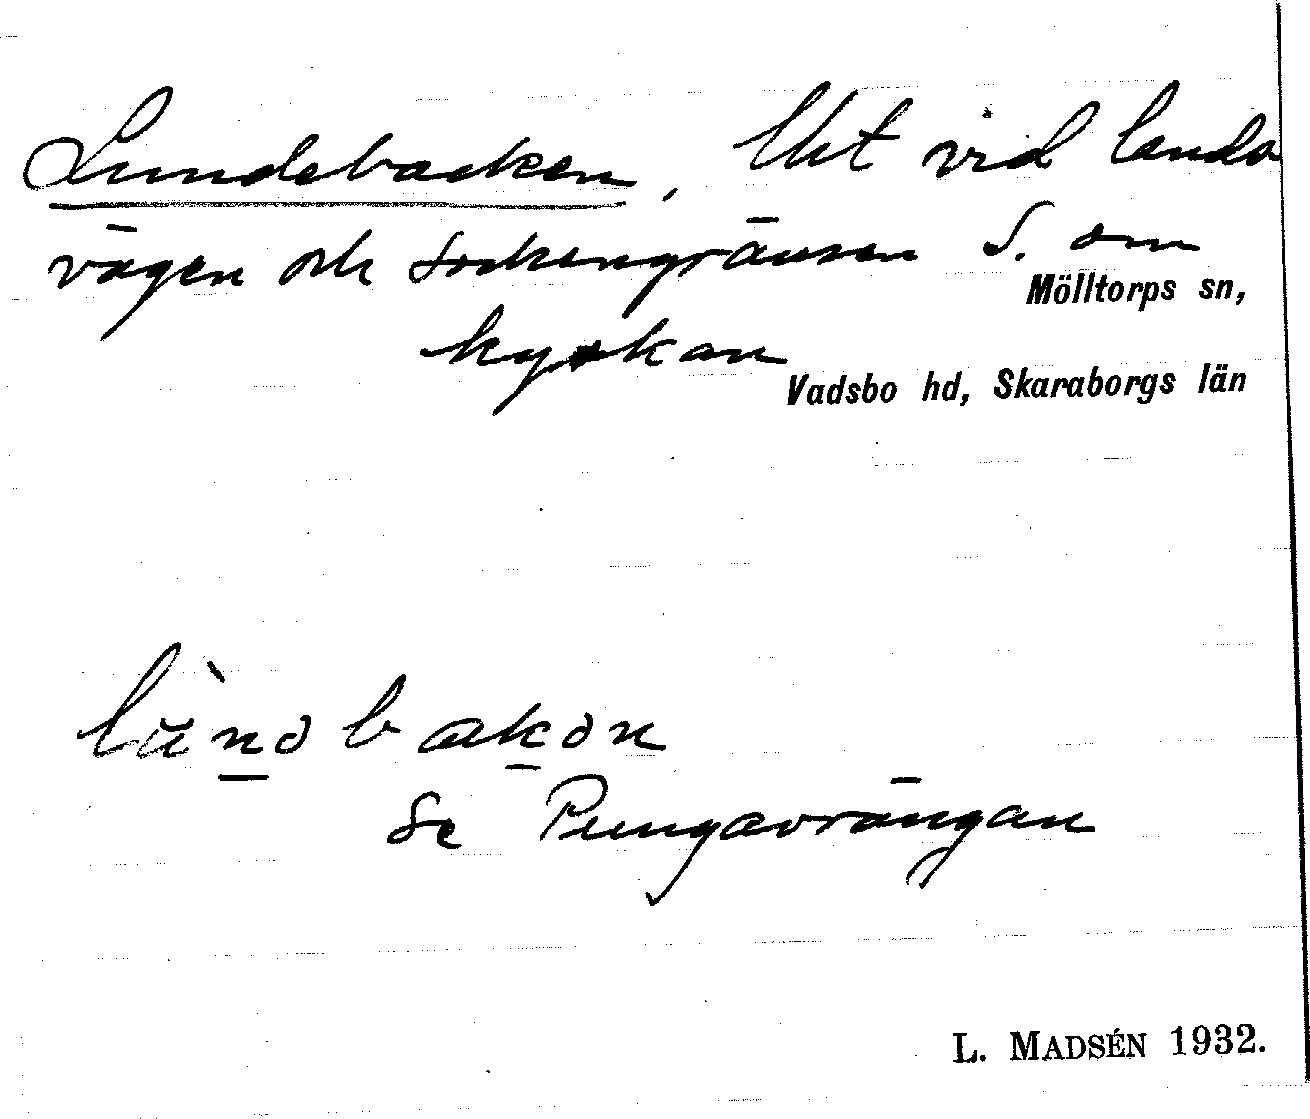 Lundebacken, lht vid lands
vägen och sockengränsen S. om
Mölltorps sn,
kyrkan
Vadsbo hd, Skaraborgs län
lùnə bakən
Se Pungavrängan
L. MADSÉN 1932.